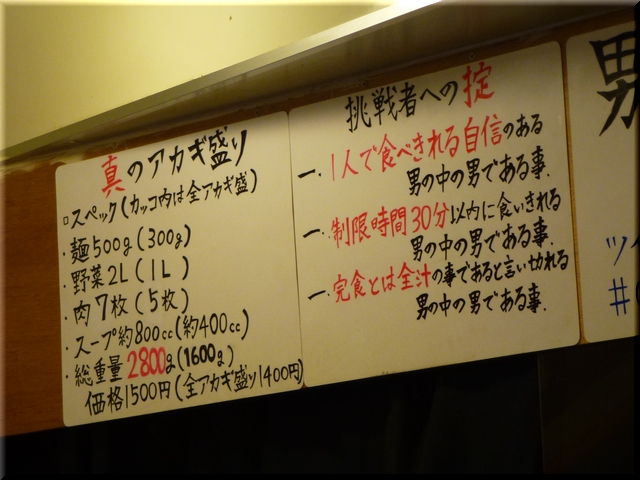 真のアカギ盛り
□スペック(カッコ内は全アカギ盛)
・麺500g(300g)
・野菜2L(1L)
・肉7枚(5枚)
・スープ約800cc(約400cc)
・総重量2800g(1600g)
価格1500円(全アカギ盛り1400円)
挑戦者への掟
一、1人で食べきれる自信のある
男の中の男である事.
一、制限時間30分以内に食いきれる
男の中の男である事.
一、完食とは全汁の事であると言い切れる
男の中の男である事.
男
ツ
#